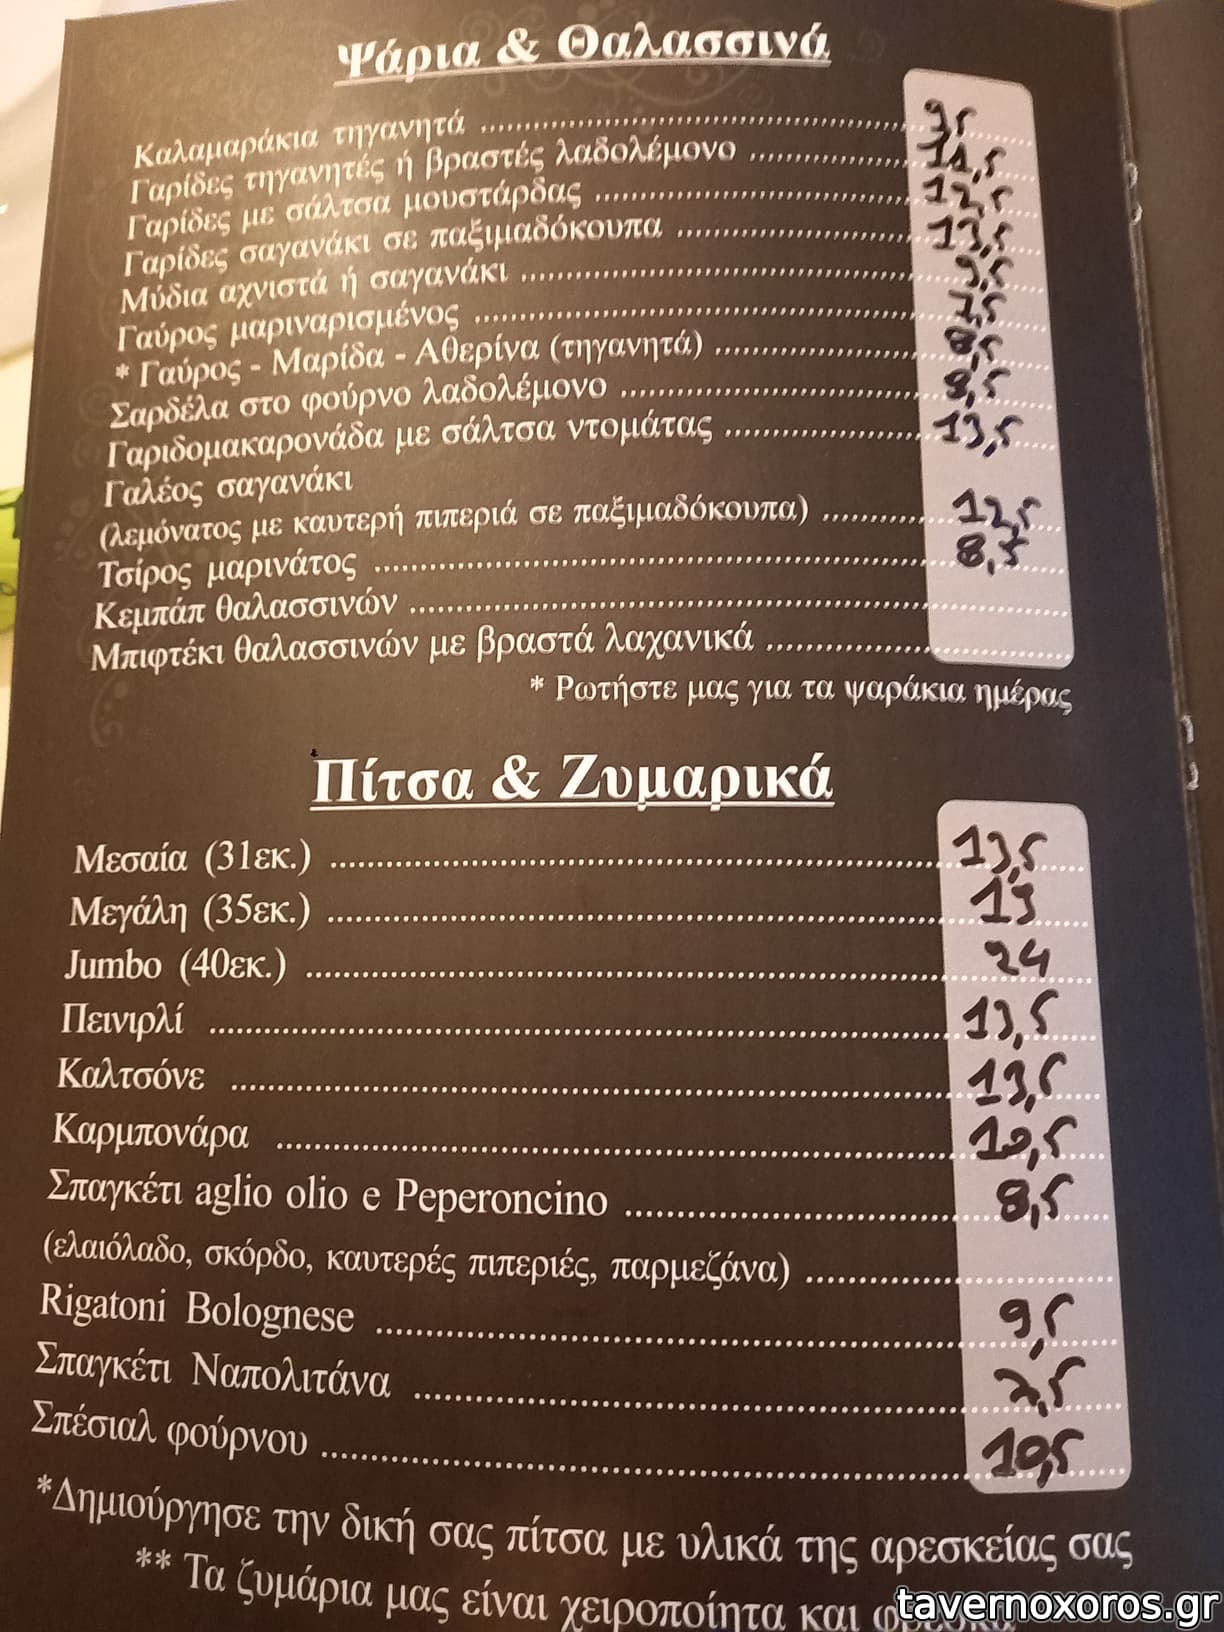 Ψάρια & Θαλασσινά
Καλαμαράκια τηγανητά
Γαρίδες τηγανητές ή βραστές λαδολέμονο
Γαρίδες με σάλτσα μουστάρδας 12,5
Γαρίδες σαγανάκι σε παξιμαδόκουπα 13,5
Μύδια αχνιστά ή σαγανάκι 9,5
Γαύρος μαριναρισμένος 7,5
* Γαύρος - Μαρίδα - Αθερίνα (τηγανητά) 8,5
Σαρδέλα στο φούρνο λαδολέμονο 8,5
Γαριδομακαρονάδα με σάλτσα ντομάτας 13,5
Γαλέος σαγανάκι
(λεμόνατος με καυτερή πιπεριά σε παξιμαδόκουπα) 12,5
Τσίρος μαρινάτος 8,5
Κεμπάπ θαλασσινών
Μπιφτέκι θαλασσινών με βραστά λαχανικά
* Ρωτήστε μας για τα ψαράκια ημέρας
Πίτσα & Ζυμαρικά
Μεσαία (31εκ.) 13,5
Μεγάλη (35εκ.)
Jumbo (40εκ.) 24
Πεινιρλί 13,5
Καλτσόνε 13,5
Καρμπονάρα 10,5
Σπαγκέτι aglio olio e Peperoncino 8,5
(ελαιόλαδο, σκόρδο, καυτερές πιπεριές, παρμεζάνα)
Rigatoni Bolognese 9,5
Σπαγκέτι Ναπολιτάνα
Σπέσιαλ φούρνου 10,5
*Δημιούργησε την δική σας πίτσα με υλικά της αρεσκείας σας
** Τα ζυμάρια μας είναι χειροποίητα και
tavernoxoros.gr